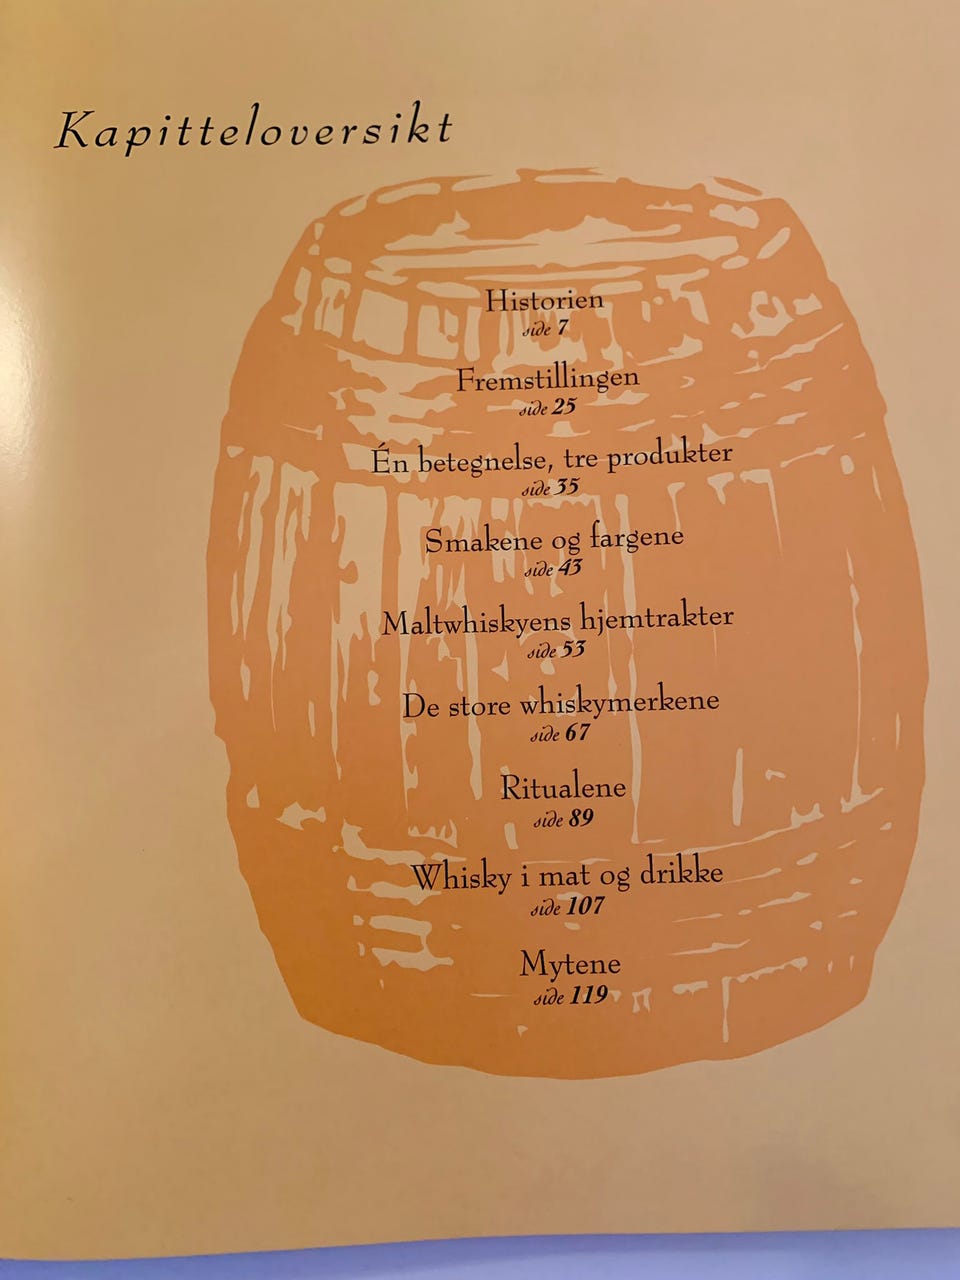 Kapitteloversikt
Historien
side 7
Fremstillingen
side 25
Én betegnelse, tre produkter
side 35
Smakene og fargene
side 43
Maltwhiskyens hjemtrakter
side 53
De store whiskymerkene
side 67
Ritualene
side 89
Whisky i mat og drikke
side 107
Mytene
side 119